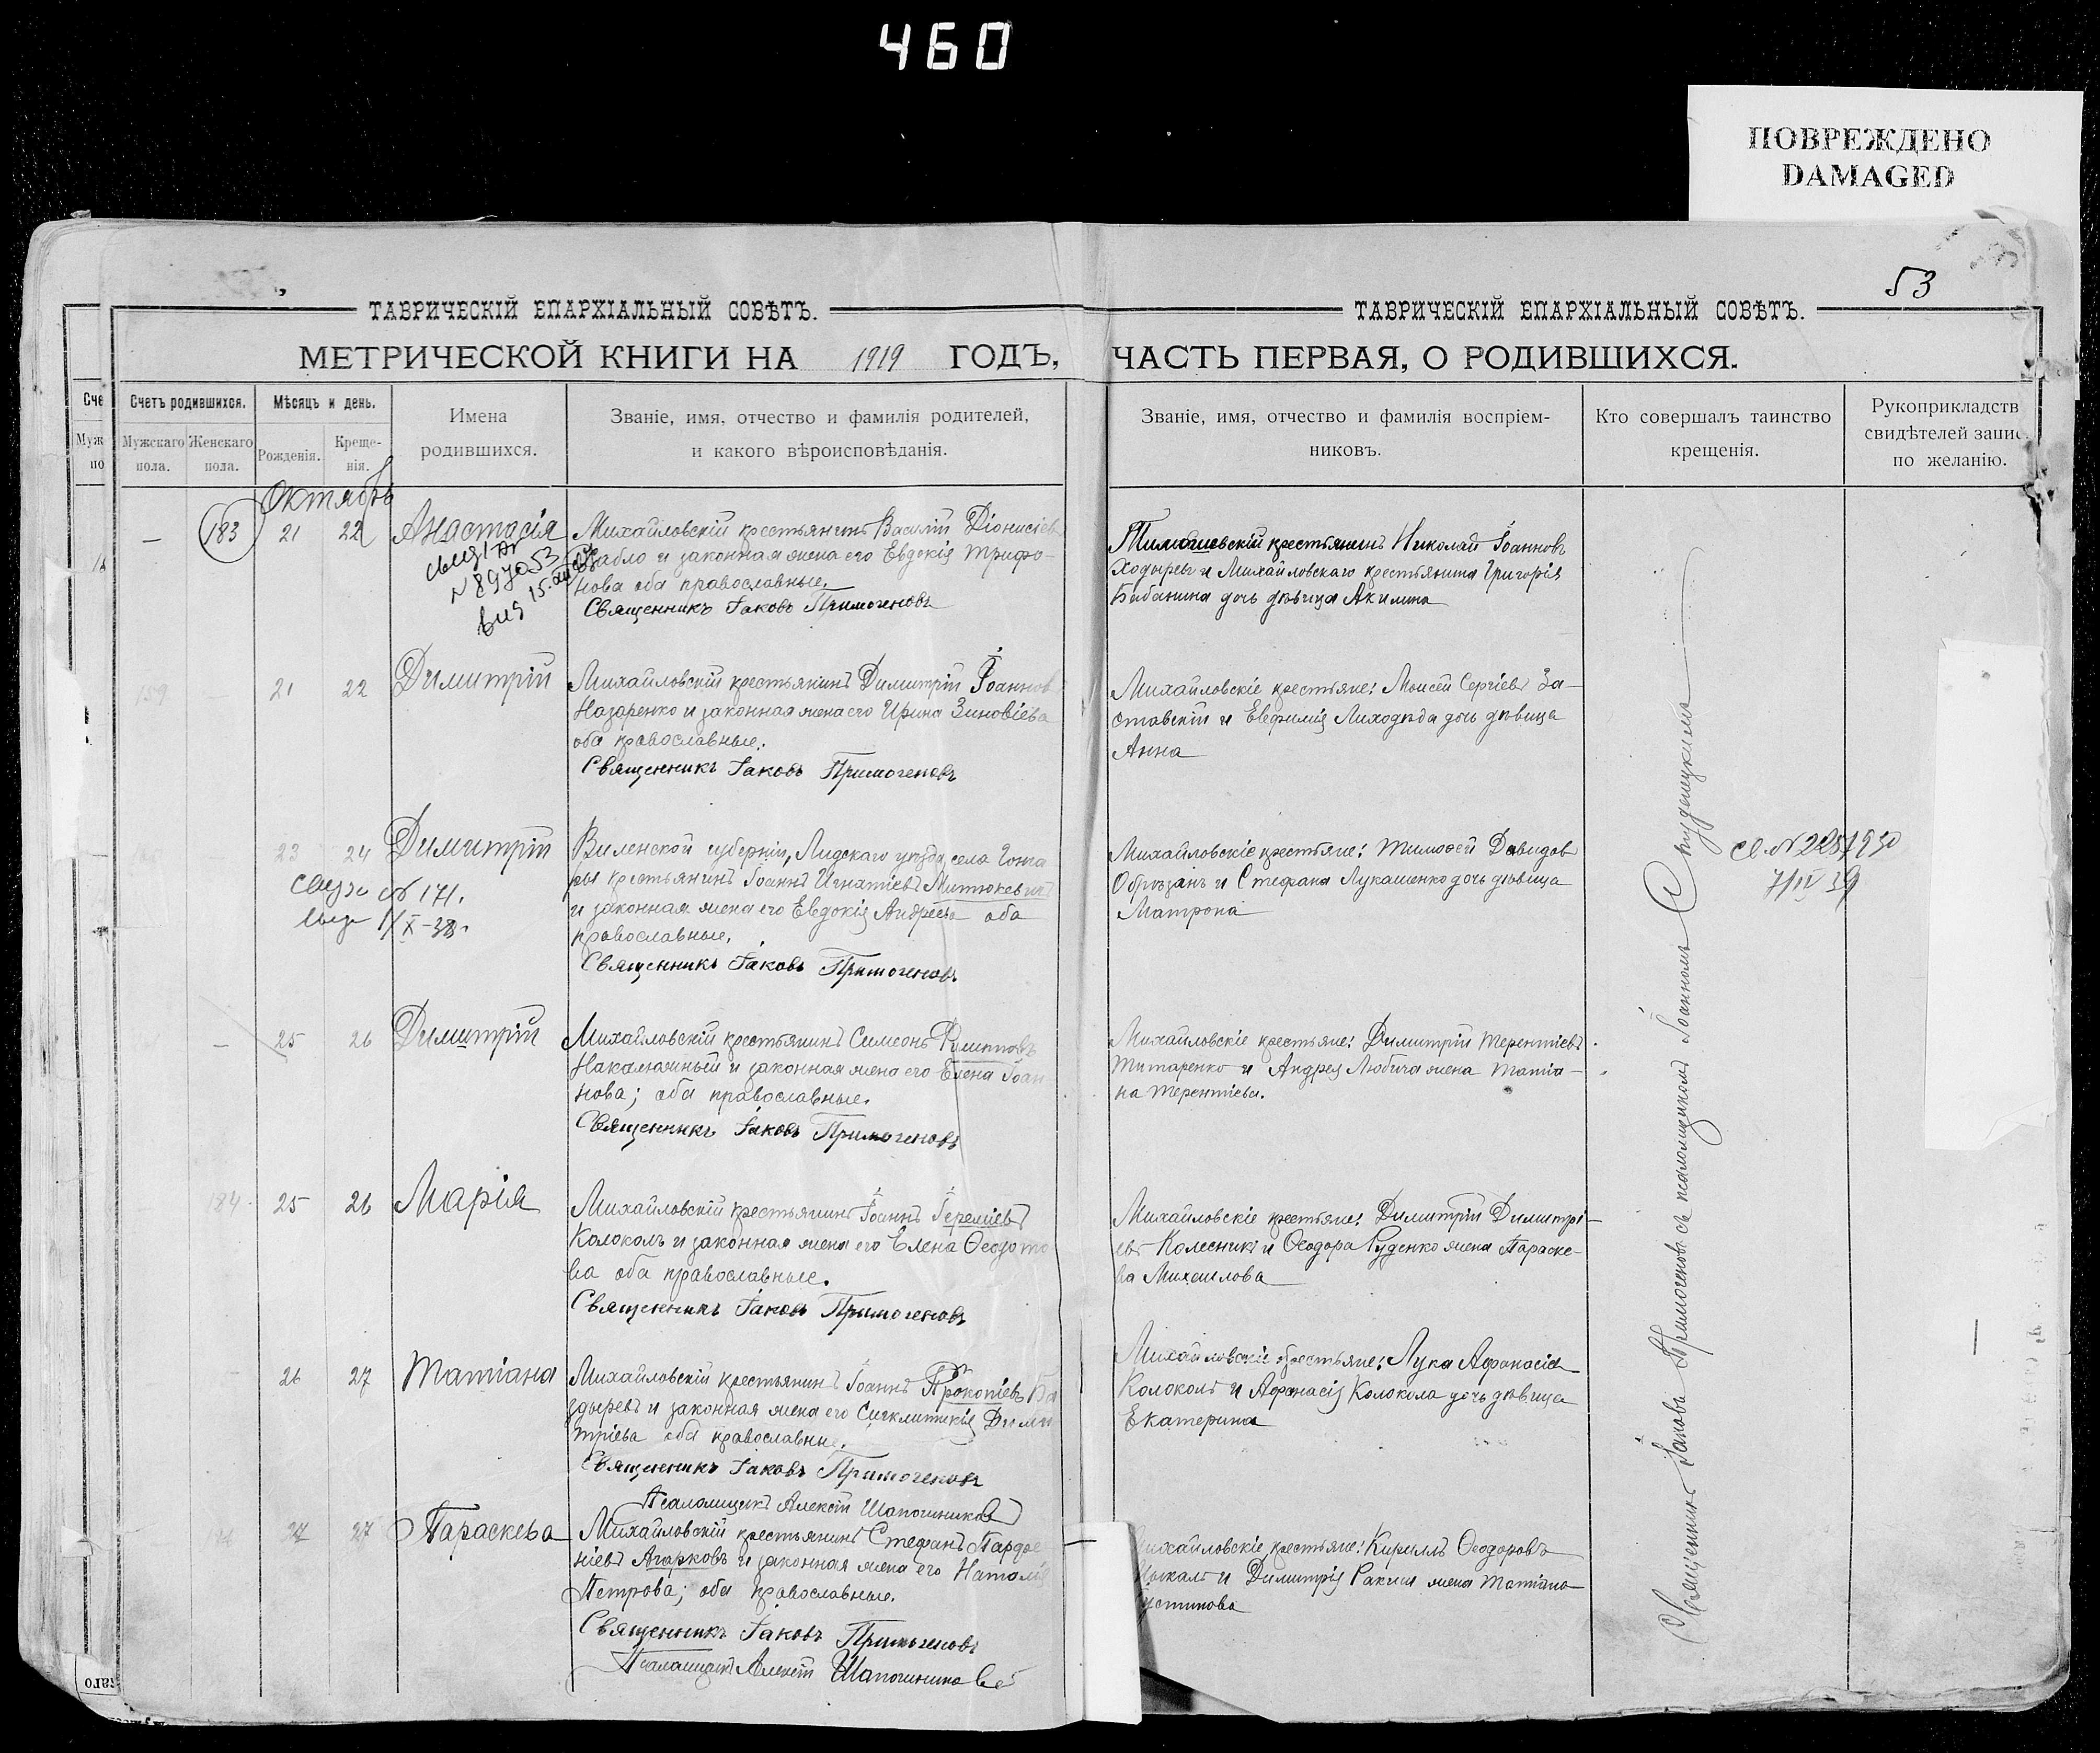 460
ПОВРЕЖДЕНО
DAMAGED
53
ТАВРИЧЕСКІЙ ЕПАРХІАЛЬНЫЙ СОВѢТЪ.
МЕТРИЧЕСКОЙ КНИГИ НА 1919 ГОДЪ,
Счетъ родившихся.
Мужскаго пола.
Женскаго пола.
Мѣсяцъ и день.
Рожденія.
Креще-
нія.
Имена
родившихся.
Званіе, имя, отчество и фамилія родителей,
и какого вѣроисповѣданія.
ТАВРИЧЕСКІЙ ЕПАРХІАЛЬНЫЙ СОВѢТЪ.
ЧАСТЬ ПЕРВАЯ, О РОДИВШИХСЯ.
Званіе, имя, отчество и фамилія воспріем-
никовъ.
Кто совершалъ таинство
крещенія.
Рукоприкладств
свидѣтелей запис.
по желанію.
Октябрь
183 21 22 Анастасія
Михайловскій крестьянинъ Василій Діонисіевъ
и законная жена его Евдокія Трифо-
нова оба православные.
Священникъ Іаковъ Примогеновъ
крестьянинъ Николай Іоанновъ
Ходыревъ и Михайловскаго крестьянина Григорія
Бабанина дочь дѣвица Акилина
159 21 22 Димитрій
Михайловскій крестьянинъ Димитрій Іоаннов
Назаренко и законная жена его Ирина Зиновіева
оба православные.
Священникъ Іаковъ Примогеновъ
Михайловскіе крестьяне: Моисей Сергіевъ За-
ставскій и Евфимія Лиходѣда дочь дѣвица
Анна
23 24 Димитрій
№ 171.
1/X-38.
Виленской губерніи, Лидскаго уѣзда, села Гонча
ры крестьянинъ Іоаннъ Игнатіевъ Митюкевичъ
и законная жена его Евдокія Андреева оба
православные.
Священникъ Іаковъ Примогеновъ.
Михайловскіе крестьяне: Тимоѳей Давидовъ
Обрѣзанъ и Стефана Лукашенко дочь дѣвица
Матрона
7/IV 39
25 26 Димитрій
Михайловскій крестьянинъ Симеонъ Филипповъ
и законная жена его Елена Іоан
нова; оба православные.
Священникъ Іаковъ Примогеновъ
Михайловскіе крестьяне: Димитрій Терентіевъ
Титаренко и Андрея Любича жена Татіа-
на Терентіева.
184. 25 26 Марія
Михайловскій крестьянинъ Іоаннъ Іереміевъ
Колоколъ и законная жена его Елена Ѳеодото
ва оба православные.
Священникъ Іаковъ Примогеновъ
Михайловскіе крестьяне: Димитрій Димитрі-
евъ Колесникъ и Ѳеодора Руденко жена Параске-
ва Михаилова
26 27 Татіана
Михайловскій крестьянинъ Іоаннъ Прокопіевъ Ба
здыревъ и законная жена его Сигклитикія Дими
тріева оба православные.
Священникъ Іаковъ Примогеновъ
Псаломщикъ Алексѣй Шапошниковъ
Михайловскіе крестьяне: Лука Афанасіев
Колоколъ и Афанасія Колокола дочь дѣвица
Екатерина
27 27 Параскева
Михайловскій крестьянинъ Стефанъ Парфе
ніевъ Агарковъ и законная жена его Наталія
Петрова; оба православные.
Священникъ Іаковъ Примогеновъ
Псаломщикъ Алексѣй Шапошниковъ
Михайловскіе крестьяне: Кириллъ Ѳеодоровъ
и Димитрія жена Татіана
Устинова
Священникъ Іаковъ Примогеновъ съ псаломщикомъ Іоанномъ